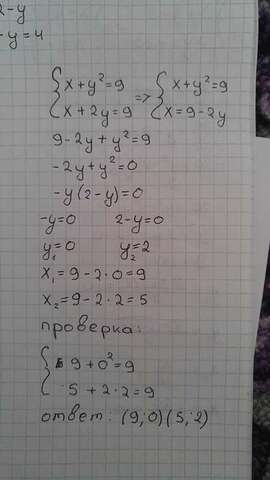 2-y
-y=4
{x+y²=9 => {x+y²=9
{x+2y=9 {x=9-2y
9-2y+y²=9
-2y+y²=0
-y(2-y)=0
-y=0 2-y=0
y₁=0 y₂=2
x₁=9-2·0=9
x₂=9-2·2=5
проверка:
{9+0²=9
{5+2·2=9
ответ: (9;0)(5;2)